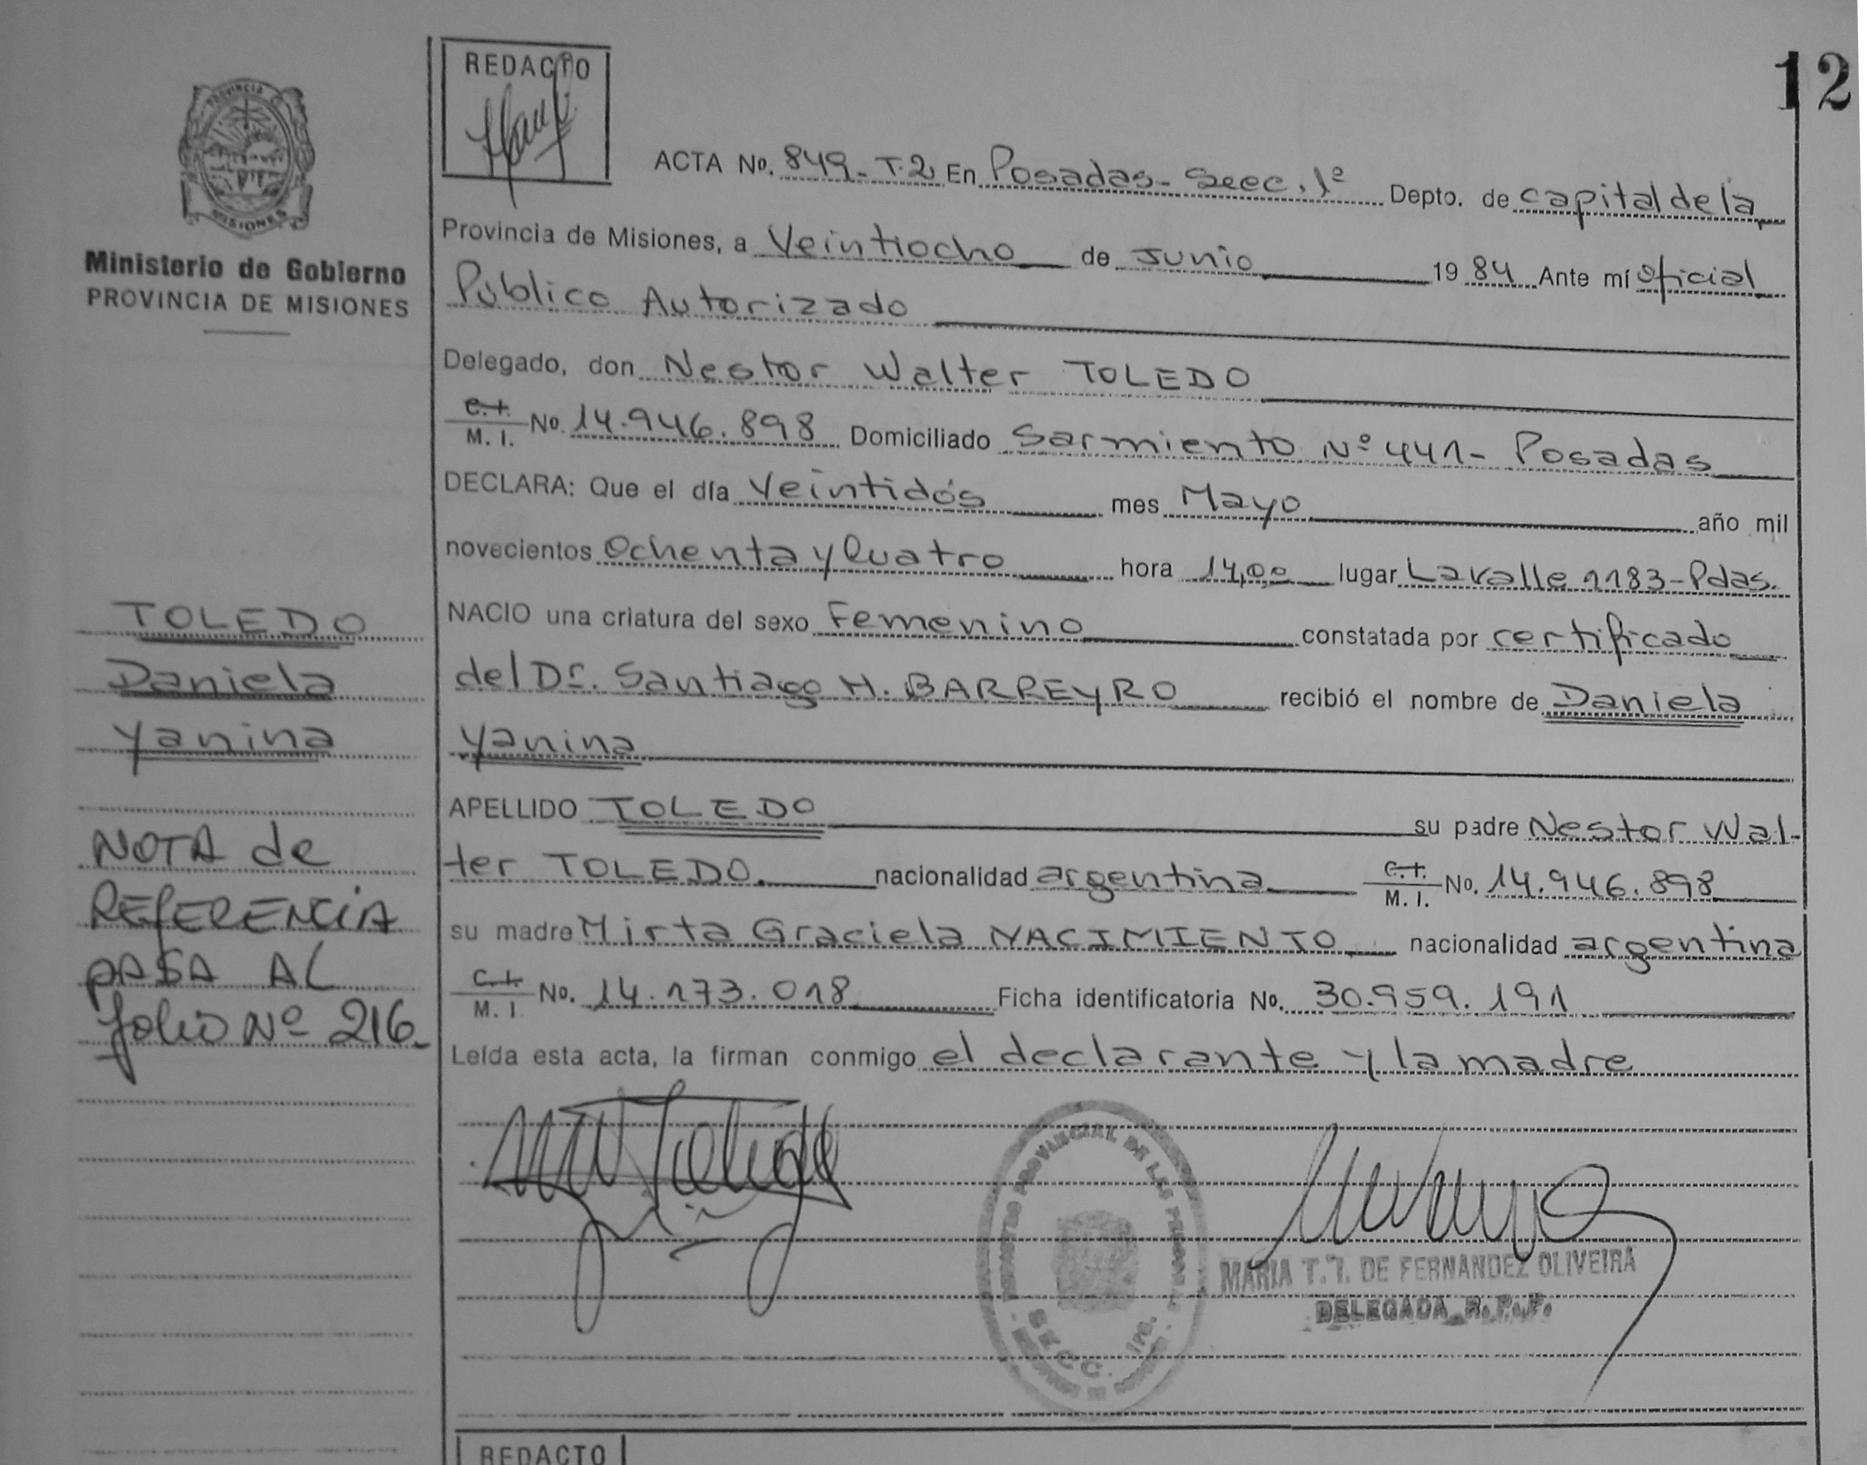 12
PROVINCIA DE
MISIONES
Ministerio de Gobierno
PROVINCIA DE MISIONES
REDACTO
ACTA No. 849- T.2 En Posadas- Secc. 1º Depto. de capital de la
Provincia de Misiones, a Veintiocho de Junio 1984 Ante mí oficial
Público Autorizado
Delegado, don Nestor Walter TOLEDO
C.I. / M. I. No 14.946.898 Domiciliado Sarmiento Nº 441- Posadas
DECLARA: Que el día Veintidós mes Mayo año mil
novecientos Ochenta y Cuatro hora 14,00 lugar Lavalle 1183-Pdas.
NACIO una criatura del sexo Femenino constatada por certificado
del Dr. Santiago H. BARREYRO recibió el nombre de Daniela
Yanina
APELLIDO TOLEDO su padre Nestor Wal-
ter TOLEDO. nacionalidad argentina C.I. / M. I. No. 14.946.898
su madre Mirta Graciela NACIMIENTO nacionalidad argentina
C.I. / M. I No. 14.173.018 Ficha identificatoria No. 30.959.191
Leída esta acta, la firman conmigo el declarante y la madre
TOLEDO
Daniela
Yanina
NOTA de
REFERENCIA
PASA AL
folio Nº 216
REGISTRO PROVINCIAL DE LAS PERSONAS
SECC. 1RA.
MARIA T. T. DE FERNANDEZ OLIVEIRA
DELEGADA R. P. P.
REDACTO